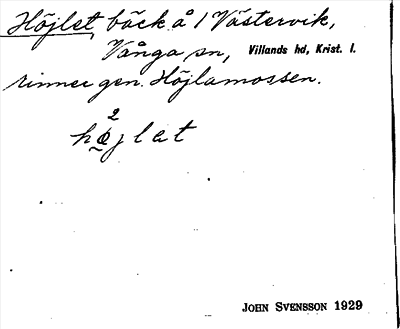 Höjlet, bäck å 1 Västervik,
Vånga sn, Villands hd, Krist. l.
rinner gen. Höjlamossen.
2
højlet
JOHN SVENSSON 1929